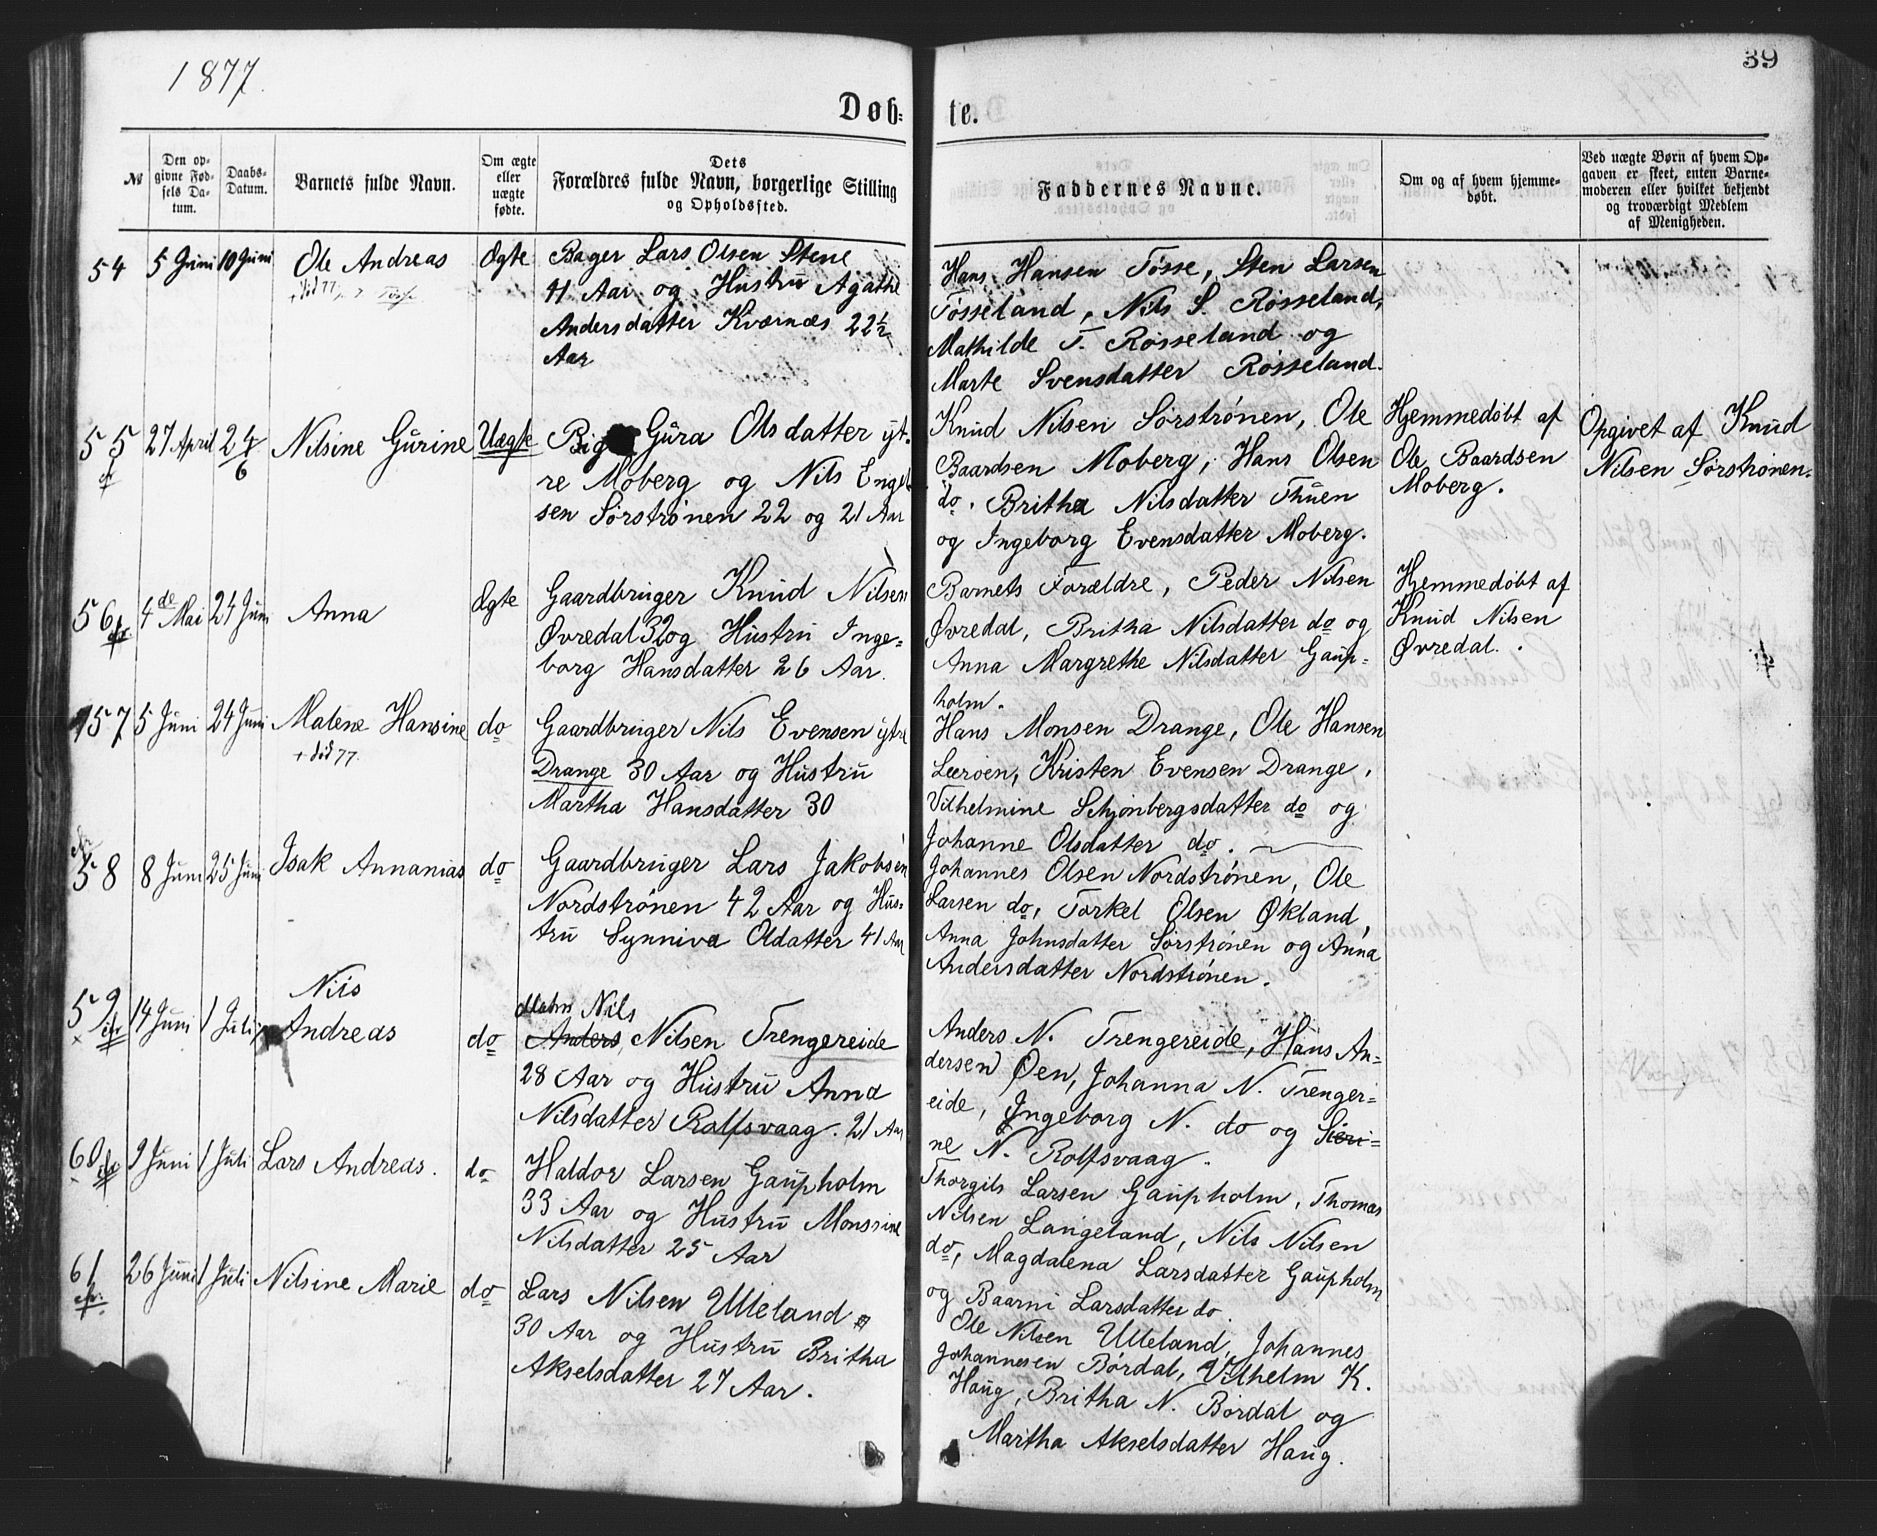 1877.
39
Døb-
te.
№
Den op-
givne Fød-
sels Da-
tum.
Daabs-
Datum.
Barnets fulde Navn.
Om ægte
eller
uægte
fødte.
Dets
Forældres fulde Navn, borgerlige Stilling
og Opholdssted.
Faddernes Navne.
Om og af hvem hjemme-
døbt.
Ved uægte Børn af hvem Op-
gaven er skeet, enten Barne-
moderen eller hvilket bekjendt
og troværdigt Medlem
af Menigheden.
54
5 Juni
10 Juni
Ole Andreas
+ død 77
Ægte
Bager Lars Olsen Stene
41 Aar og Hustru Agathe
Andersdatter Kværnæs 22½
Aar
Hans Hansen Tøsse, Sten Larsen
Tøsseland, Nils S. Røsseland,
Mathilde T. Røsseland og
Marte Svensdatter Røsseland.
55
27 April
24/6
Nilsine Gurine
Uægte
Pige Gura Olsdatter yt-
re Moberg og Nils Engel-
sen Sørstrønen 22 og 21 Aar
Knud Nilsen Sørstrønen, Ole
Baardsen Moberg, Hans Olsen
do. Britha Nilsdatter Thuen
og Ingeborg Evensdatter Moberg.
Hjemmedøbt af
Ole Baardsen
Moberg.
Opgivet af Knud
Nilsen Sørstrønen.
56
4de Mai
24 Juni
Anna
Ægte
Gaardbruger Knud Nilsen
Øvredal 32 og Hustru Inge-
borg Hansdatter 26 Aar.
Barnets Forældre, Peder Nilsen
Øvredal, Britha Nilsdatter do og
Anna Margrethe Nilsdatter Gaup-
holm.
Hjemmedøbt af
Knud Nilsen
Øvredal.
57
5 Juni
24 Juni
Malene Hansine
+ død 77.
do
Gaardbruger Nils Evensen ytre
Drange 30 Aar og Hustru
Martha Hansdatter 30
Hans Monsen Drange, Ole Hansen
Leerøen, Kristen Evensen Drange,
Vilhelmine Schjønbergsdatter do og
Johanne Olsdatter do.
58
8 Juni
25 Juni
Isak Annanias
do
Gaardbruger Lars Jakobsen
Nordstrønen 42 Aar og Hus-
tru Synniva Oldatter 41 Aar
Johannes Olsen Nordstrønen, Ole
Larsen do, Torkel Olsen Økland,
Anna Johnsdatter Sørstrønen og Anna
Andersdatter Nordstrønen.
59
14 Juni
1 Juli
Nils
Andreas
do
Nils
Anders Nilsen Trengereide
28 Aar og Hustru Anna
Nilsdatter Rolfsvaag. 21 Aar
Anders N. Trengereide, Hans An-
dersen Øen, Johanna N. Trenger-
eide, Ingeborg N. do og Seri-
ne N. Rolfsvaag.
60
9 Juni
1 Juli
Lars Andreas.
do
Haldor Larsen Gaupholm
33 Aar og Hustru Monssine
Nilsdatter 25 Aar
Thorgils Larsen Gaupholm, Thomas
Nilsen Langeland, Nils Nilsen
do, Magdalena Larsdatter Gaupholm
og Baarni Larsdatter do.
61
26 Juni
1 Juli
Nilsine Marie
do
Lars Nilsen Ulleland
30 Aar og Hustru Britha
Akselsdatter 27 Aar.
Ole Nilsen Ulleland, Johannes
Johannesen Børdal, Vilhelm K.
Haug, Britha N. Børdal og
Martha Akselsdatter Haug.